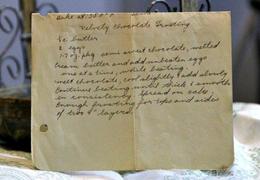 Bake at 350°
Velvety Chocolate Frosting
½ c butter
2 eggs
1-7 oz. pkg semi sweet chocolate, melted
Cream butter and add unbeaten eggs
one at a time, while beating
melt chocolate, cool slightly & add slowly
Continue beating until thick & smooth
in consistency. Spread on cake,
Enough frosting for tops and sides
of two 8" layers.